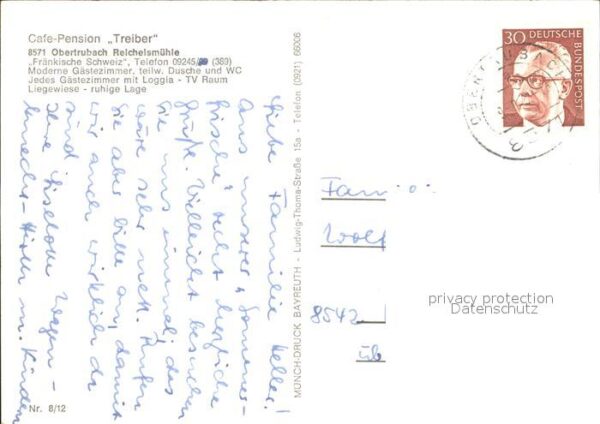 Cafe-Pension „Treiber"
8571 Obertrubach Reichelsmühle
„Fränkische Schweiz", Telefon 09245/ (389)
Moderne Gästezimmer, teilw. Dusche und WC
Jedes Gästezimmer mit Loggia - TV Raum
Liegewiese - ruhige Lage
Liebe Familie Keller!
Aus unserer „Sommer-
frische" recht herzliche
Grüße. Vielleicht besuchen
Sie uns einmal, das
wäre sehr nett. Rufen
Sie aber bitte an, damit
wir auch wirklich da
sind
Ihre Liselotte Wagen-
m. Kindern
Nr. 8/12
MÜNCH-DRUCK BAYREUTH - Ludwig-Thoma-Straße 15a - Telefon (0921) 66006
30 DEUTSCHE
BUNDESPOST
OBERTRUBACH
Fam
Wolf
8542
üb
privacy protection
Datenschutz